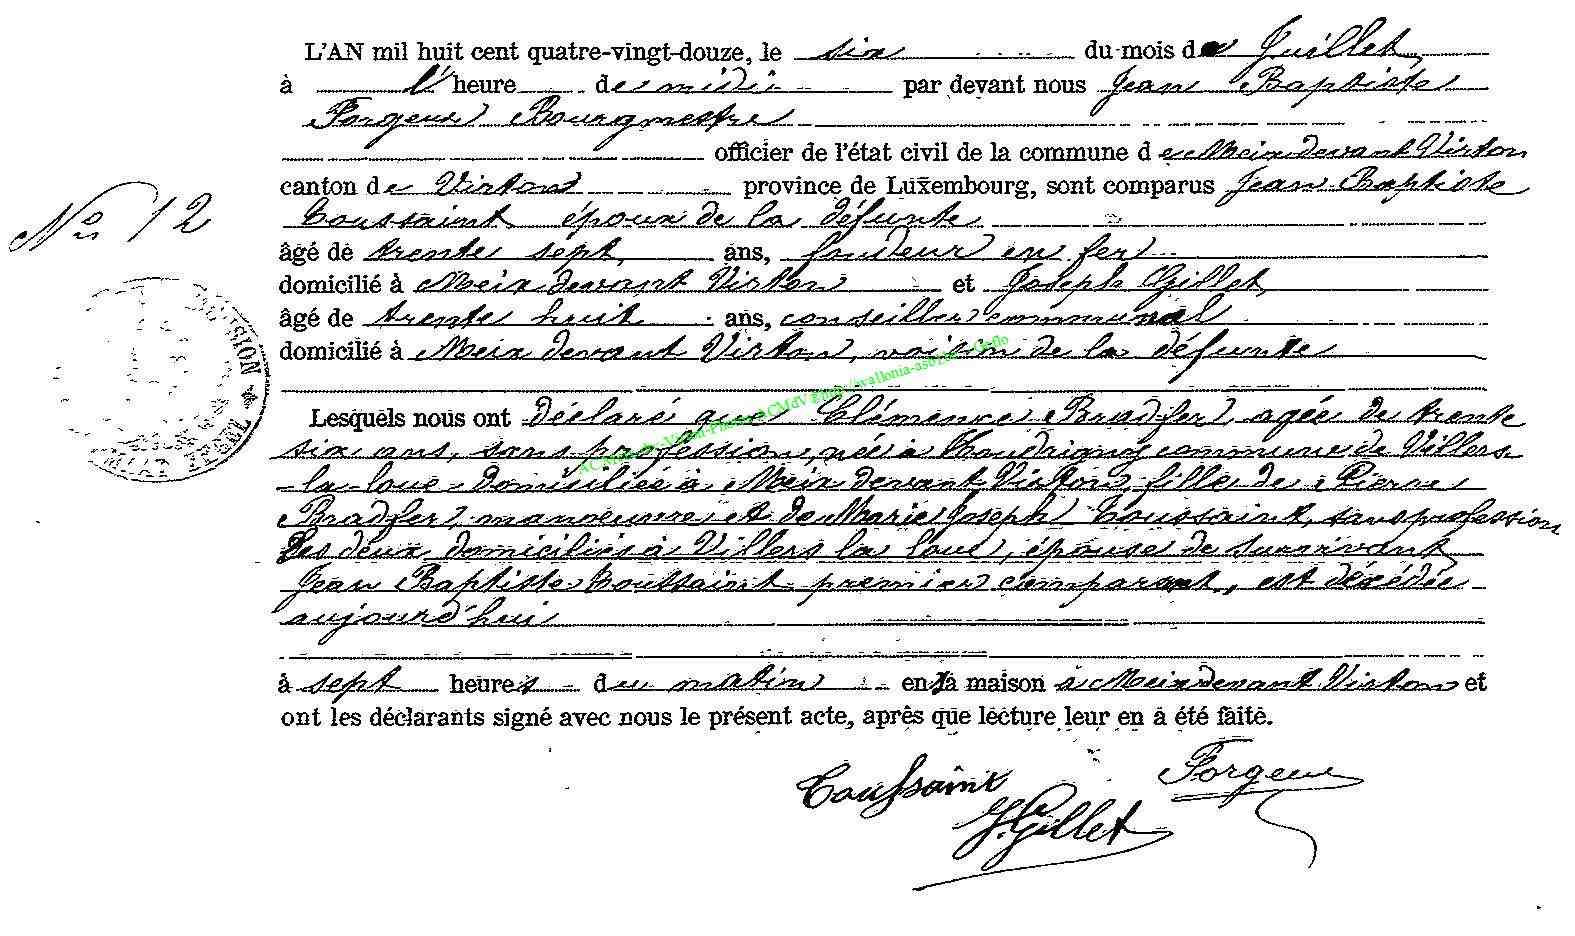 L'AN mil huit cent quatre-vingt-douze, le six du mois de Juillet
à l'heure de midi par devant nous Jean Baptiste
Forgeur Bourgmestre
officier de l'état civil de la commune de Meix devant Virton
canton de Virton province de Luxembourg, sont comparus Jean Baptiste
N° 12
Toussaint époux de la défunte
âgé de trente sept ans, fondeur en fer
domicilié à Meix devant Virton et Joseph Gillet
âgé de trente huit ans, conseiller communal
domicilié à Meix devant Virton, voisin de la défunte
Lesquels nous ont déclaré que Clémence Bradfer, agée de trente
six ans, sans profession, née à Houdrigny commune de Villers
-la-loue domiciliée à Meix devant Virton, fille de Pierre
Bradfer, manoeuvre et de Marie Joseph Toussaint, sans profession
Les deux domiciliés à Villers la loue, épouse de survivant
Jean Baptiste Toussaint premier comparant, est décédée
aujourd'hui
à sept heures du matin en sa maison à Meix devant Virton et
ont les déclarants signé avec nous le présent acte, après que lecture leur en a été faite.
Toussaint Forgeur
J. Gillet